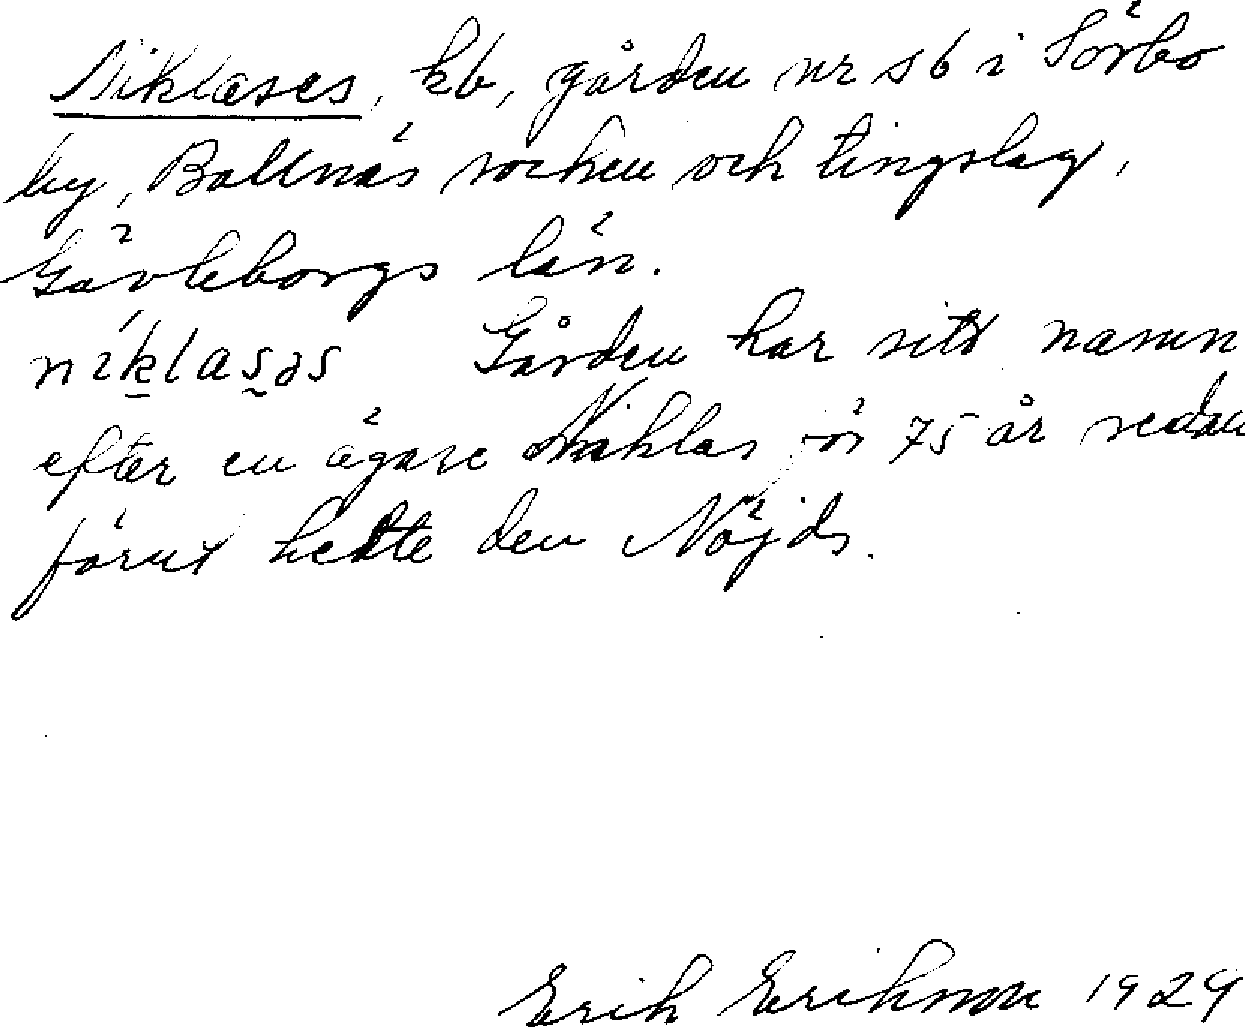 Niklases, kb, gården nr 16 i Sörbo
by, Bollnäs socken och tingslag,
Gävleborgs län.
níklasəs Gården har sitt namn
efter en ägare Niklas för 75 år sedan
förut hette den Nöjds.
Erik Erikson 1929